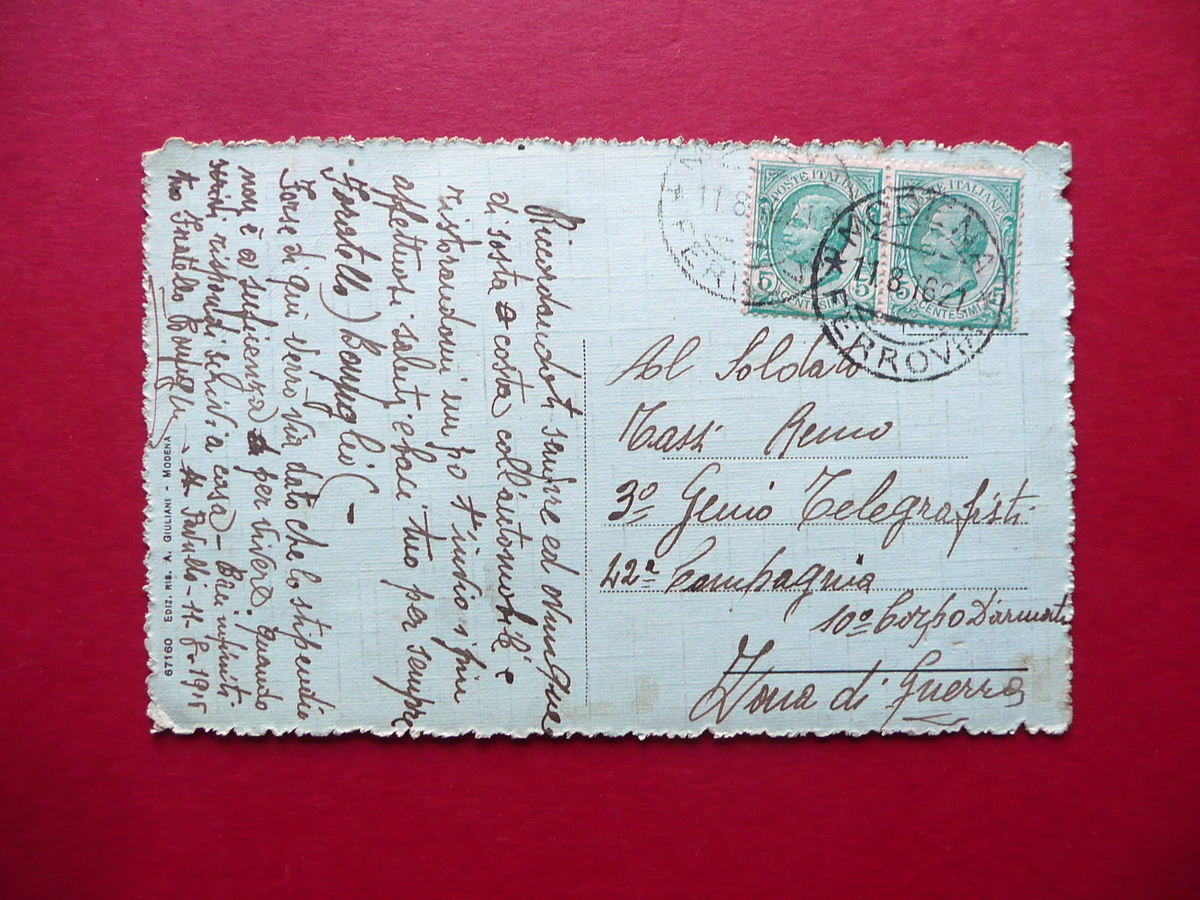 Ricordandoti sempre ed ovunque
di sosta e costa coll'automobile e
ristorandomi un po t'invio i più
affettuosi saluti e baci tuo per sempre
Fratello)
Forse di qui verrò via dato che lo stipendio
non è a suficienza per vivere; quando
scrivi rispondi scrivi a casa - Baci infiniti
tuo Fratello
Pavullo - 11-8-1915
67160 EDIZ. RIS. A. GIULIANI - MODENA
POSTE ITALIANE
5 5
CENTESIMI
POSTE ITALIANE
5
CENTESIMI
11.8
FERROVIA
MODENA
11.8.1621
FERROVIA
Al Soldato
Tassi Remo
3º Genio Telegrafisti
42ª Compagnia
10º Corpo D'armata
Zona di Guerra